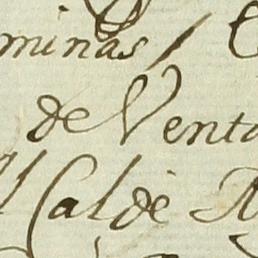 minas / C
de Vento
Calde